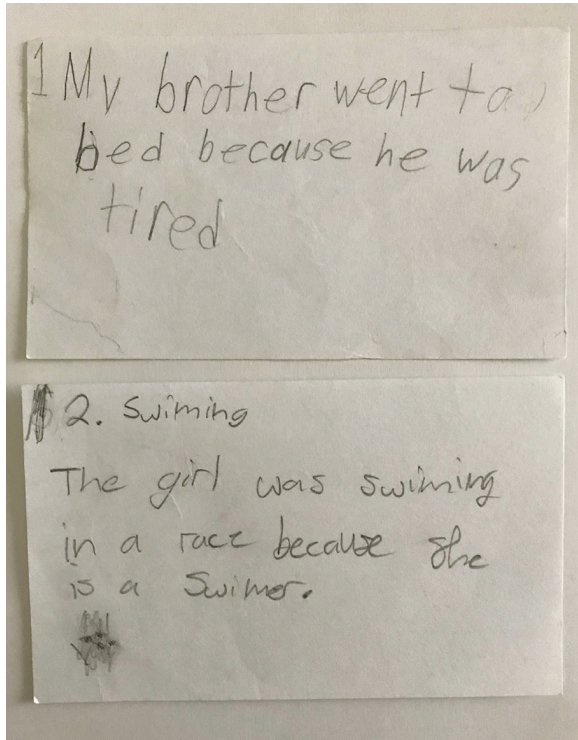 1 My brother went to
bed because he was
tired
2. Swiming
The girl was swiming
in a race because she
is a Swimer.